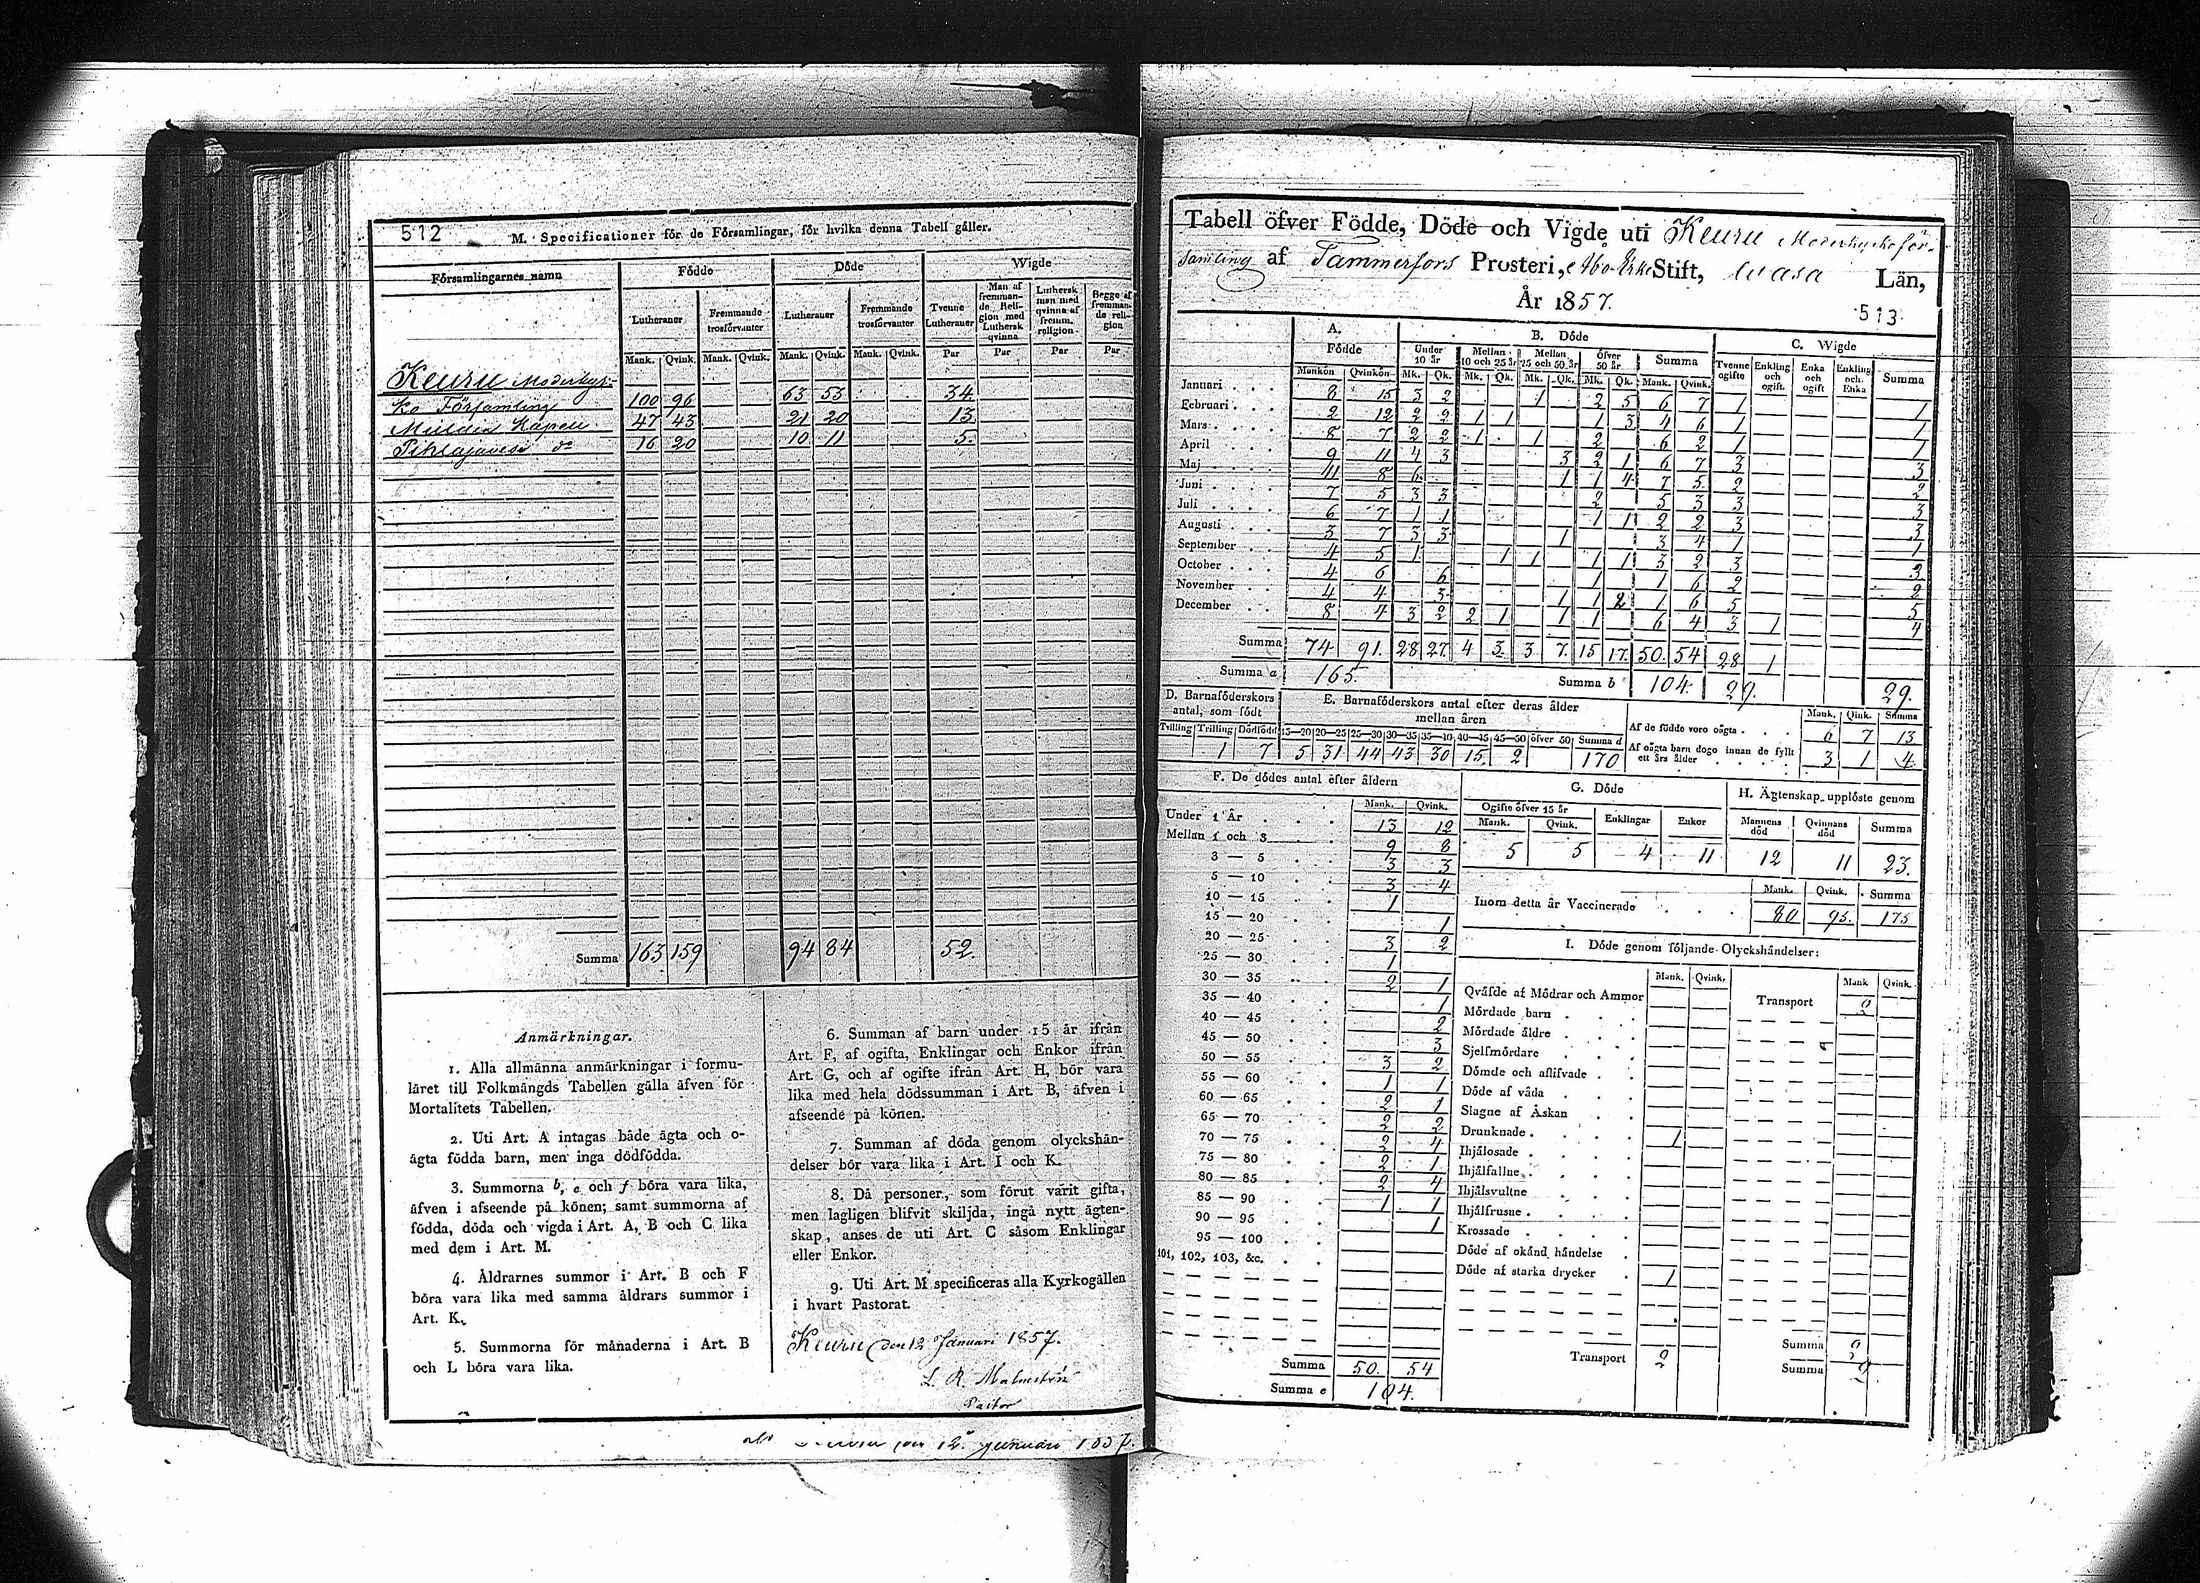 512
M. Specificationer för de Församlingar, för hvilka denna Tabell gäller.
Församlingarnes namn Födde Döde Wigde
Lutheraner Fremmande trosförvanter Lutheraner Fremmande trosförvanter Tvenne Lutheraner Man af fremmande Religion med Luthersk qvinna Luthersk man med qvinna af fremm. religion Begge af fremmande religion
Mank. Qvink. Mank. Qvink. Mank. Qvink. Mank. Qvink. Par Par Par Par
Keuru Moderkyr-
ko Församling 100 96 63 53 34
Multia Kapell 47 43 21 20 13
Pihlajavesi do 16 20 10 11 5
Summa 163 159 94 84 52
Anmärkningar.
1. Alla allmänna anmärkningar i formu-
läret till Folkmängds Tabellen gälla äfven för
Mortalitets Tabellen.
2. Uti Art. A intagas både ägta och o-
ägta födda barn, men inga dödfödda.
3. Summorna b, e och f böra vara lika,
äfven i afseende på könen; samt summorna af
födda, döda och vigda i Art. A, B och C lika
med dem i Art. M.
4. Åldrarnes summor i Art. B och F
böra vara lika med samma åldrars summor i
Art. K.
5. Summorna för månaderna i Art. B
och L böra vara lika.
6. Summan af barn under 15 år ifrån
Art. F, af ogifta, Enklingar och Enkor ifrån
Art. G, och af ogifte ifrån Art. H, bör vara
lika med hela dödssumman i Art. B, äfven i
afseende på könen.
7. Summan af döda genom olyckshän-
delser bör vara lika i Art. I och K.
8. Då personer, som förut varit gifta,
men lagligen blifvit skiljda, ingå nytt ägten-
skap, anses de uti Art. C såsom Enklingar
eller Enkor.
9. Uti Art. M specificeras alla Kyrkogällen
i hvart Pastorat.
Keuru den 12 Januari 1857.
L. R. Malmström
Pastor
12 Januari 1857.
Tabell öfver Födde, Döde och Vigde uti Keuru Moderkyrkoför-
samling af Tammerfors Prosteri, Åbo Erke Stift, Wasa Län,
År 1857.
513
A. Födde B. Döde C. Wigde
Under 10 år Mellan 10 och 25 år Mellan 25 och 50 år öfver 50 år Summa Tvenne ogifte Enkling och ogift. Enka och ogift Enkling och Enka Summa
Mankön Qvinkön Mk. Qk. Mk. Qk. Mk. Qk. Mk. Qk. Mank. Qvink.
Januari 8 15 3 2 1 2 5 6 7 1 1
Februari 2 12 2 2 1 1 1 3 4 6 1 1
Mars 8 7 2 2 1 1 2 6 2 1 1
April 9 11 4 3 3 2 1 6 7 3 3
Maj 11 8 6 1 1 4 7 5 2 2
Juni 7 5 3 3 2 5 3 3 3
Juli 6 7 1 1 1 1 2 2 3 3
Augusti 3 7 3 3 1 3 4 1 1
September 4 5 1 1 1 1 1 3 2 3 3
October 4 6 6 1 1 6 2 2
November 4 4 3 1 1 2 1 6 5 5
December 8 4 3 2 2 1 1 1 6 4 3 1 4
Summa 74 91 28 27 4 3 3 7 15 17 50 54 28 1
Summa a 165 Summa b 104 29. 29.
D. Barnaföderskors antal, som födt
Tvilling Trilling Dödfödd
1 7
E. Barnaföderskors antal efter deras ålder mellan åren
15—20 20—25 25—30 30—35 35—40 40—45 45—50 öfver 50 Summa d
5 31 44 43 30 15 2 170
Mank. Qink. Summa
Af de födde voro oägta 6 7 13
Af oägta barn dogo innan de fyllt ett års ålder 3 1 4
F. De dödes antal efter åldern
Mank. Qvink.
Under 1 År 13 12
Mellan 1 och 3 9 8
3 — 5 3 3
5 — 10 3 4
10 — 15 1
15 — 20 1
20 — 25 3 2
25 — 30 1
30 — 35 2 1
35 — 40 1
40 — 45 2
45 — 50 3
50 — 55 3 2
55 — 60 1 1
60 — 65 2 1
65 — 70 2 2
70 — 75 2 4
75 — 80 2 1
80 — 85 2 4
85 — 90 1 1
90 — 95 1
95 — 100
101, 102, 103, &c.
Summa 50. 54
Summa e 104.
G. Döde
Ogifte öfver 15 år Enklingar Enkor
Mank. Qvink.
5 5 4 11
H. Ägtenskap upplöste genom
Mannens död Qvinnans död Summa
12 11 23.
Mank. Qvink. Summa
Inom detta år Vaccinerade 80 95. 175
I. Döde genom följande Olyckshändelser:
Mank. Qvink. Mank Qvink.
Qväfde af Mödrar och Ammor Transport 2
Mördade barn
Mördade äldre
Sjelfmördare
Dömde och aflifvade
Döde af våda
Slagne af Åskan
Drunknade 1
Ihjälosade
Ihjälfallne
Ihjälsvultne
Ihjälfrusne
Krossade
Döde af okänd händelse
Döde af starka drycker 1
Transport 2
Summa 2
Summa 2